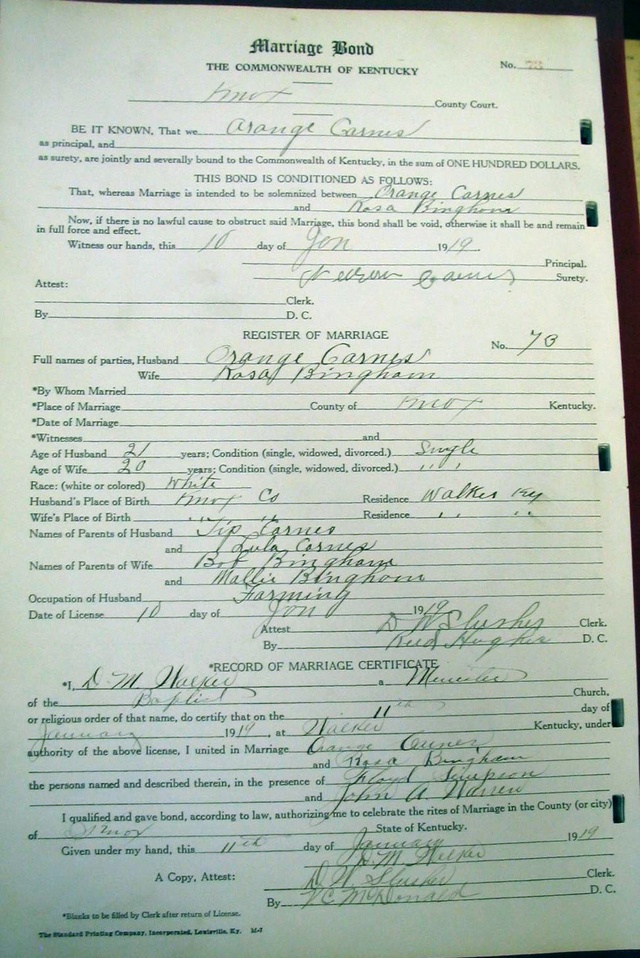 Marriage Bond
THE COMMONWEALTH OF KENTUCKY
No. 73
Knox County Court.
BE IT KNOWN, That we Orange Carnes
as principal, and
as surety, are jointly and severally bound to the Commonwealth of Kentucky, in the sum of ONE HUNDRED DOLLARS.
THIS BOND IS CONDITIONED AS FOLLOWS:
That, whereas Marriage is intended to be solemnized between Orange Carnes
and Rosa Bingham
Now, if there is no lawful cause to obstruct said Marriage, this bond shall be void, otherwise it shall be and remain
in full force and effect.
Witness our hands, this 10 day of Jan 1919.
Principal.
Carnes Surety.
Attest:
Clerk.
By D. C.
REGISTER OF MARRIAGE
No. 73
Full names of parties, Husband Orange Carnes
Wife Rosa Bingham
*By Whom Married
*Place of Marriage County of Knox Kentucky.
*Date of Marriage
*Witnesses and
Age of Husband 21 years; Condition (single, widowed, divorced.) Single
Age of Wife 20 years; Condition (single, widowed, divorced.) " "
Race: (white or colored) White
Husband's Place of Birth Knox Co Residence Walker Ky
Wife's Place of Birth " " Residence " "
Names of Parents of Husband Tip Carnes
and Lula Carnes
Names of Parents of Wife Bob Bingham
and Mollie Bingham
Occupation of Husband Farming
Date of License 10 day of Jan 1919
Attest D W Slusher Clerk.
By Reed Hughes D. C.
*RECORD OF MARRIAGE CERTIFICATE
*I, D. M. Walker a Minister
of the Baptist Church,
or religious order of that name, do certify that on the 11th day of
January 1919, at Walker Kentucky, under
authority of the above license, I united in Marriage Orange Carnes
and Rosa Bingham
the persons named and described therein, in the presence of Floyd Simpson
and John A Warren
I qualified and gave bond, according to law, authorizing me to celebrate the rites of Marriage in the County (or city)
of Knox State of Kentucky.
Given under my hand, this 11th day of January 1919
D. M. Walker
A Copy, Attest: D. W. Slusher Clerk.
By V.C. McDonald D. C.
*Blanks to be filled by Clerk after return of License.
The Standard Printing Company, Incorporated, Louisville, Ky. M-7